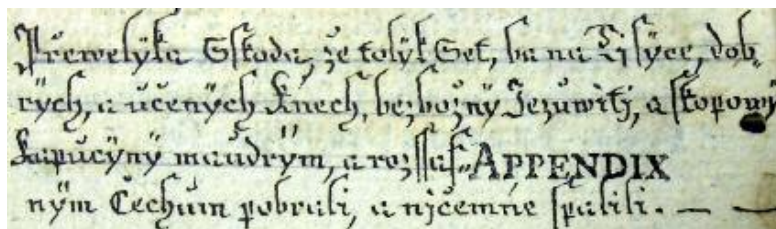 Přewelyka Sskoda, že tolyk Set, ba na Tisyce, dob-
rých, a učených Knech, bezbožny Jezuwiti, a skopowy
Kapucyny maudrým, a rozssaf- APPENDIX
ným Čechům pobrali, a ničemńe spalili. — —